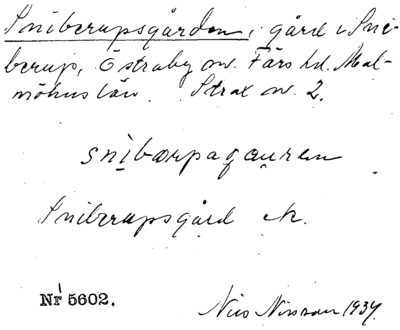 Sniberupsgården, gård i Sni-
berup, Östraby sn. Färs hd. Mal-
möhus län. Strax n. 2.
snibærpagauren
Sniberupsgård K.
Nr 5602.
Nils Nilsson 1934